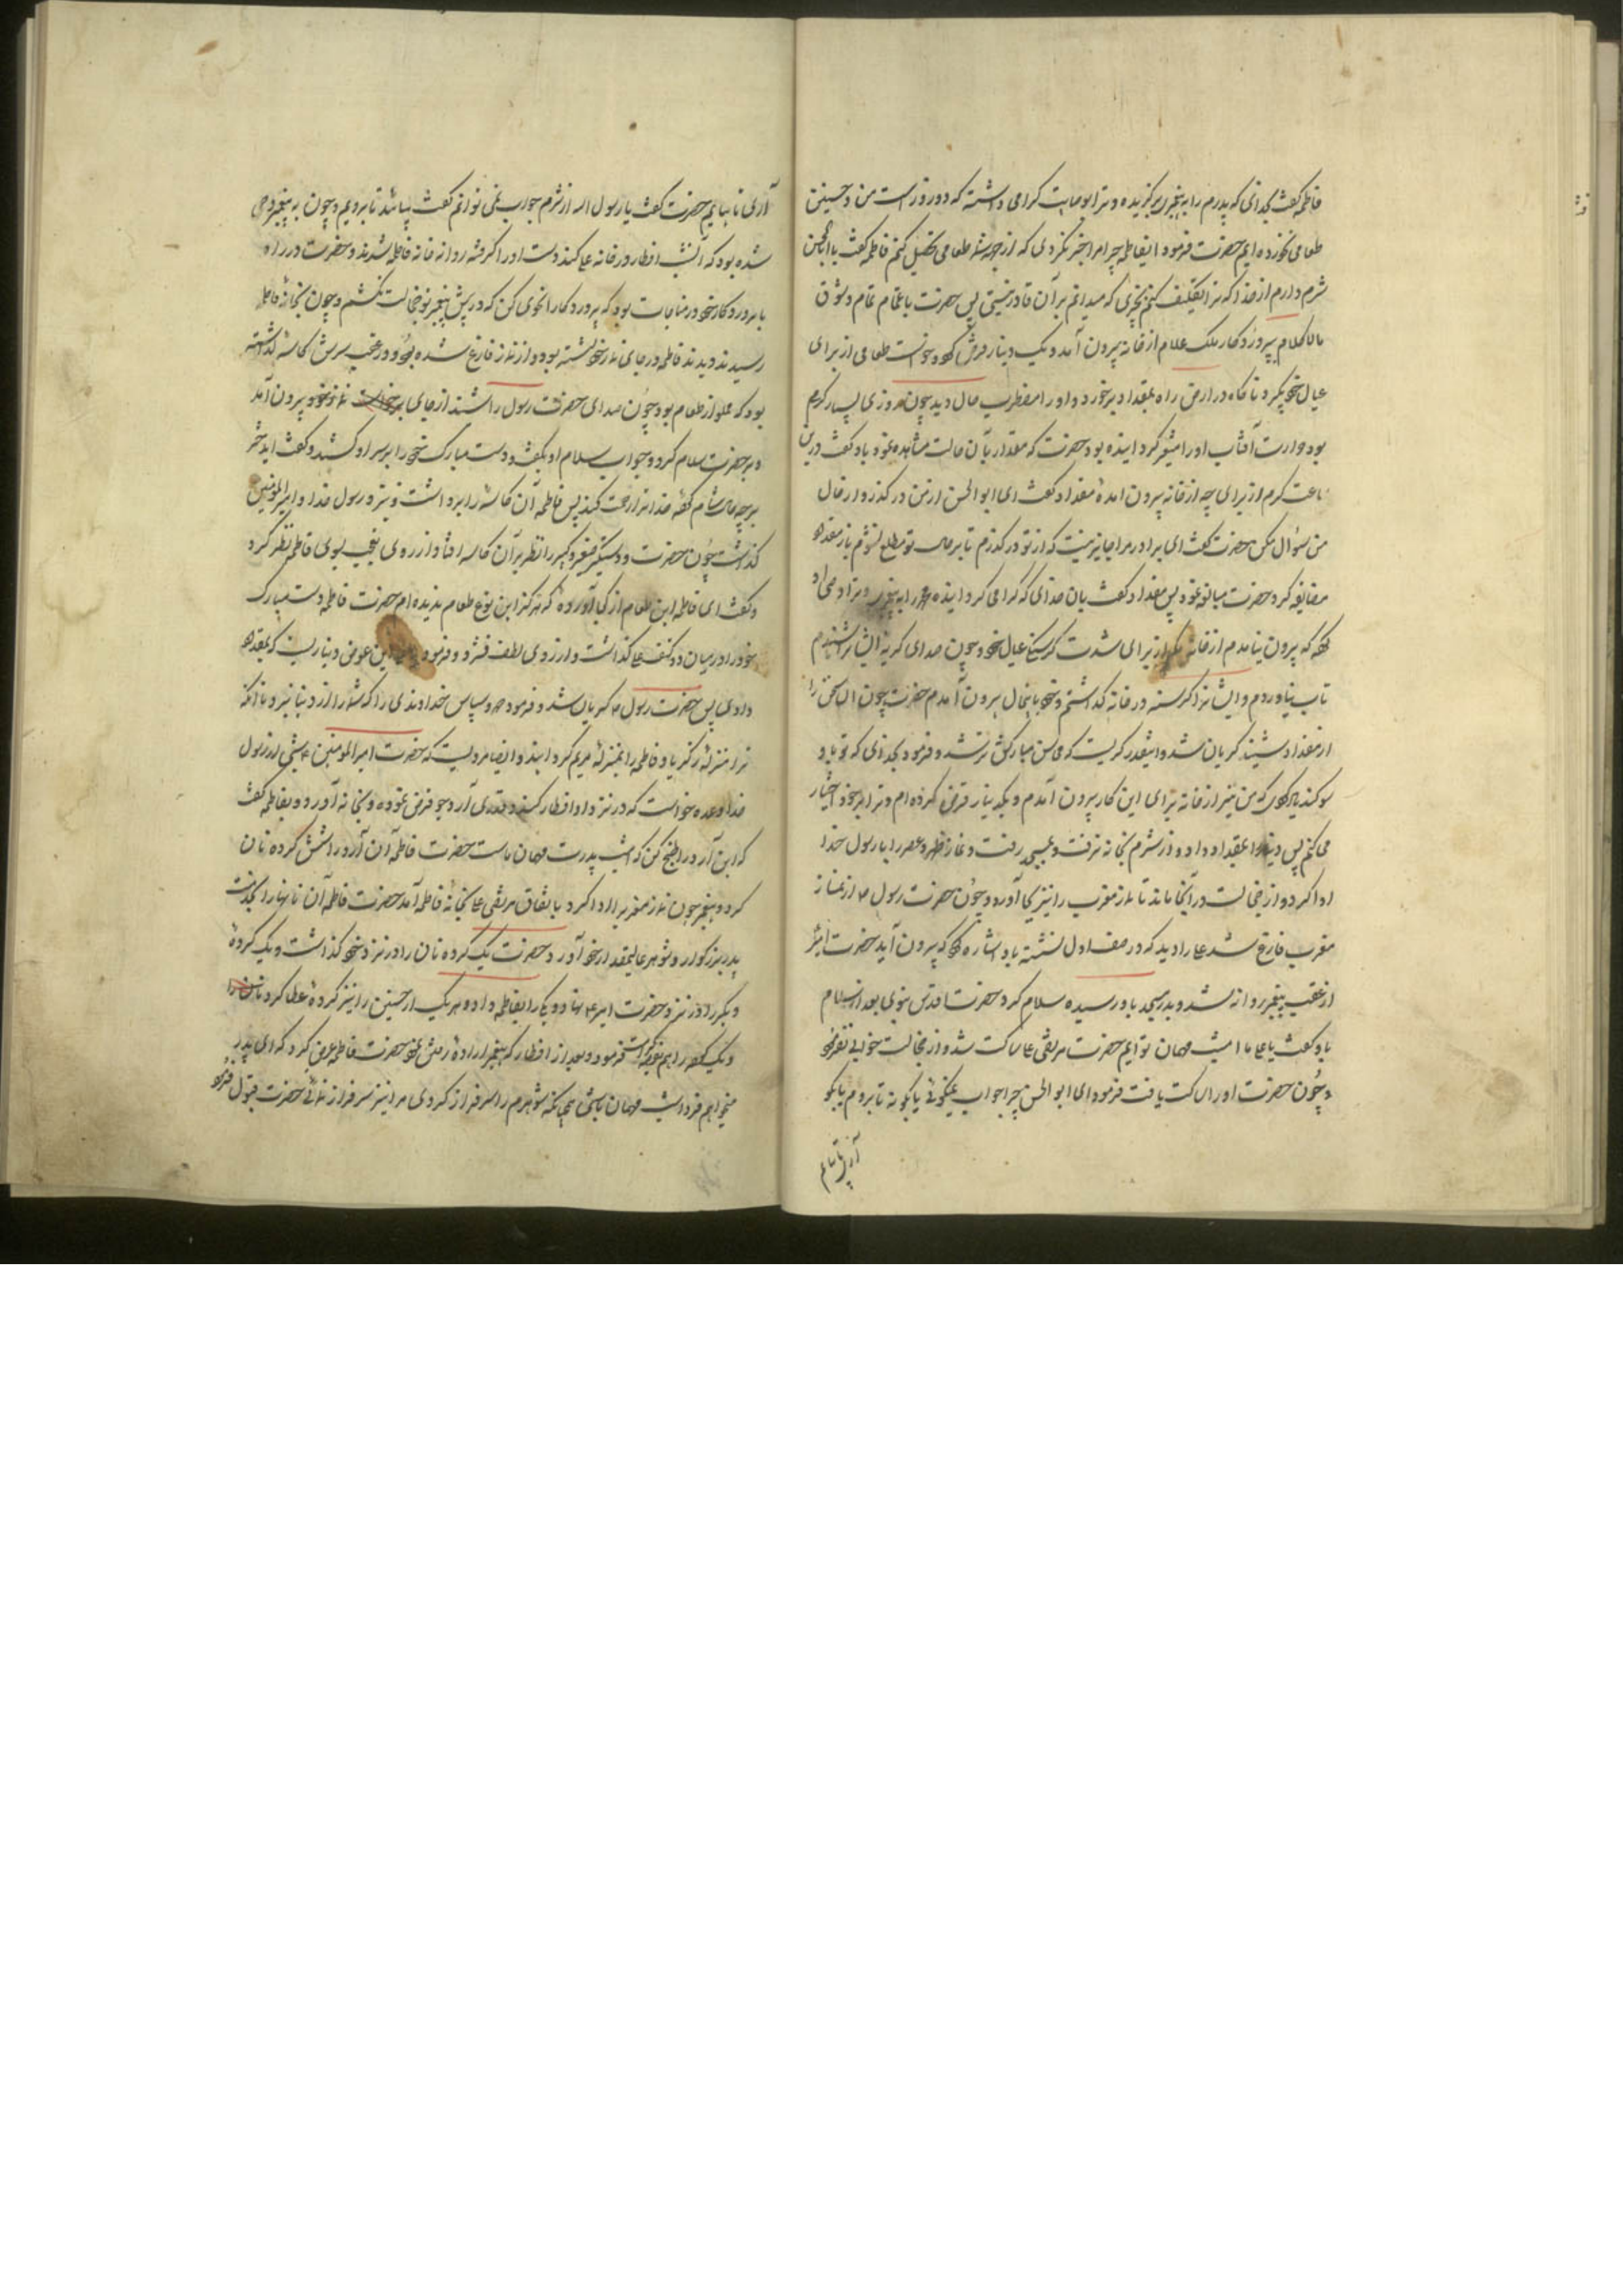 فاطمه گفت بخدائی که پدرم را به پیغمبری برگزیده و ترا بوصایت گرامی داشته که دو روز است من و حسنین
طعامی نخورده ایم حضرت فرمود ایفاطمه چرا مرا خبر نکردی که از جهة شما طعامی تحصیل کنم فاطمه گفت یا ابا الحسن
شرم دارم از خدا که ترا تکلیف کنم بچیزی که میدانم بر آن قادر نیستی پس حضرت با تمام
کلام بپروردکار ملک علام از خانه بیرون آمد و یک دینار قرض کرد و خواست طعامی از برای
عیال خود بگیرد ناکاه در راه بمقداد برخورد و او را مضطرب حال دید چون روزی بسیار گرم
بود حرارت آفتاب او را متغیر گردانیده بود حضرت که مقداد را بآن حالت مشاهده نمود باو گفت درین
ساعت گرم از برای چه از خانه بیرون امدهٔ مقداد گفت ای ابو الحسن از من در گذر و از حال
من سؤال مکن حضرت گفت ای برادر مرا جایز نیست که از تو در گذرم تا بر حال تو مطلع نشوم باز مقداد
مضایقه کرد حضرت مبالغه نمود پس مقداد گفت بآن خدائی که گرامی گردانیده محمد را به پیغمبری و ترا بوصایت
که بیرون نیامدم از خانه مگر از برای شدت گرسنگی عیال خود و چون صدای گریه ایشانرا شنیدم
تاب نیاوردم و ایشانرا گرسنه در خانه گذاشتم و خود باینحال بیرون آمدم حضرت چون این سخن را
از مقداد شنید گریان شد و اینقدر گریست که محاسن مبارکش تر شد و فرمود بخدائی که تو باو
سوگند یاد کردی که من نیز از خانه برای این کار بیرون آمدم و یکدینار قرض کرده ام و ترا بر خود اختیار
می کنم پس دینار را بمقداد داد و از شرم بخانه نرفت و بمسجد رفت و نماز ظهر و عصر را با رسول خدا
ادا کرد و از خجالت در آنجا ماند تا نماز مغرب را نیز بجا آورد و چون حضرت رسول ص از نماز
مغرب فارغ شد علی را دید که در صف اول نشسته باو اشاره کرد که بیرون آید حضرت امیر
از عقب پیغمبر روانه شد و بدر مسجد باو رسیده سلام کرد حضرت اقدس نبوی بعد از سلام
باو گفت یا علی ما امشب مهمان توایم حضرت مرتضی علی ساکت شد و از خجالت جوابی نفرمود
و چون حضرت او را ساکت یافت فرمود ای ابو الحسن چرا جواب نمیگوئی یا بکو نه تا بروم یا بکو
آری تا بیایم
آری تا بیایم حضرت گفت یا رسول الله از شرم جواب نمی توانم گفت بیائید تا برویم و چون به پیغمبر وحی
شده بود که آنشب افطار در خانه علی کند دست او را گرفته روانه خانه فاطمه شدند و حضرت در راه
با پروردکار خود در مناجات بود که پروردکارا نحوی کن که در پیش پیغمبر تو خجالت نکشم و چون بخانه فاطمه
رسیدند دیدند فاطمه در جای نماز خود نشسته بود و از نماز فارغ شده بود و در عقب سرش کاسهٔ گذاشته
بود که مملو از طعام بود چون صدای حضرت رسول را شنید از جای نماز خود بیرون آمد
و بر حضرت سلام کرد و جواب سلام او بگفت و دست مبارک خود را بر سر او کشید و گفت ایدختر
بر چه حال شام کردهٔ خدا ترا رحمت کند پس فاطمه آن کاسه را برداشت و نزد رسول خدا و امیر المؤمنین
گذاشت چون حضرت را نظر بر آن کاسه افتاد از روی تعجب بسوی فاطمه نظر کرد
و گفت ای فاطمه این طعام از کجا آوردهٔ که هرگز این نوع طعام ندیده ام حضرت دست مبارک
خود را در میان دو کتف علی گذاشت و از روی لطف فشرد و فرمود این عوض دیناریست که بمقداد
دادی پس حضرت رسول ص گریان شد و فرمود حمد و سپاس خداوندی را که شما را از دنیا نبرد تا آنکه
ترا بمنزلهٔ زکریا و فاطمه را بمنزلهٔ مریم گردانید و ایضا مرویست که حضرت امیر المؤمنین ع شبی از رسول
خدا وعده خواست که در نزد او افطار کند و قدری آرد جو قرض نموده و بخانه آورد و بفاطمه گفت
که این آرد را طبخ کن که امشب پدرت مهمان ماست حضرت فاطمه آن آرد را شش گرده نان
کرد و پیغمبر چون نماز مغرب را ادا کرد باتفاق مرتضی علی بخانهٔ فاطمه آمد حضرت فاطمه آن نانها را بخدمت
پدر بزرگوار و شوهر عالیمقدار خود آورد حضرت یک گرده نان را در نزد خود گذاشت و یک گردهٔ
دیگر را در نزد حضرت امیر ع نهاد و یکی را بفاطمه داد و هر یک از حسنین را نیز گردهٔ عطا کرد
و یک گرده را هم بفضه فرمود و بعد از افطار که پیغمبر ارادهٔ رفتن نمود حضرت فاطمه عرض کرد که ای پدر
میخواهم فردا شب مهمان من باشی همچنانکه شوهرم را سرفراز کردی مرا نیز سرفراز نمائی حضرت قبول فرمود